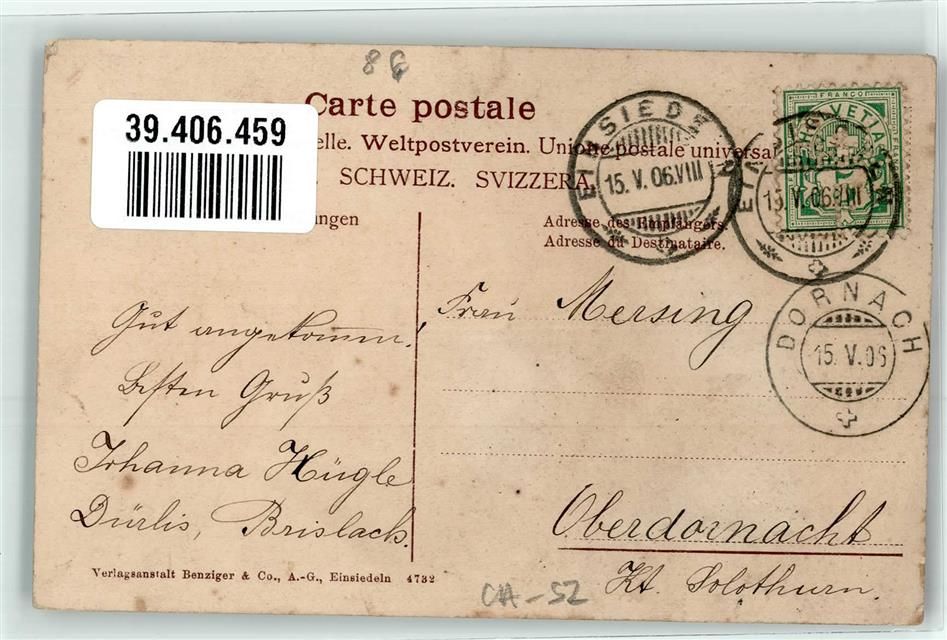 86
39.406.459
Carte postale
elle. Weltpostverein. Union postale universal
SCHWEIZ. SVIZZERA.
ungen
Adresse des Empfängers.
Adresse du Destinataire.
FRANCO
HELVETIA
EINSIEDELN
15. V. 06. VIII
EINSIEDELN
15. V. 06. VIII
DORNACH
15. V. 06
Gut angekommen.
Besten Gruß
Johanna Hügle
Dürlis, Brislach.
Frau Mersing
Oberdornacht
Kt. Solothurn.
Verlagsanstalt Benziger & Co., A.-G., Einsiedeln 4732
CH-SZ